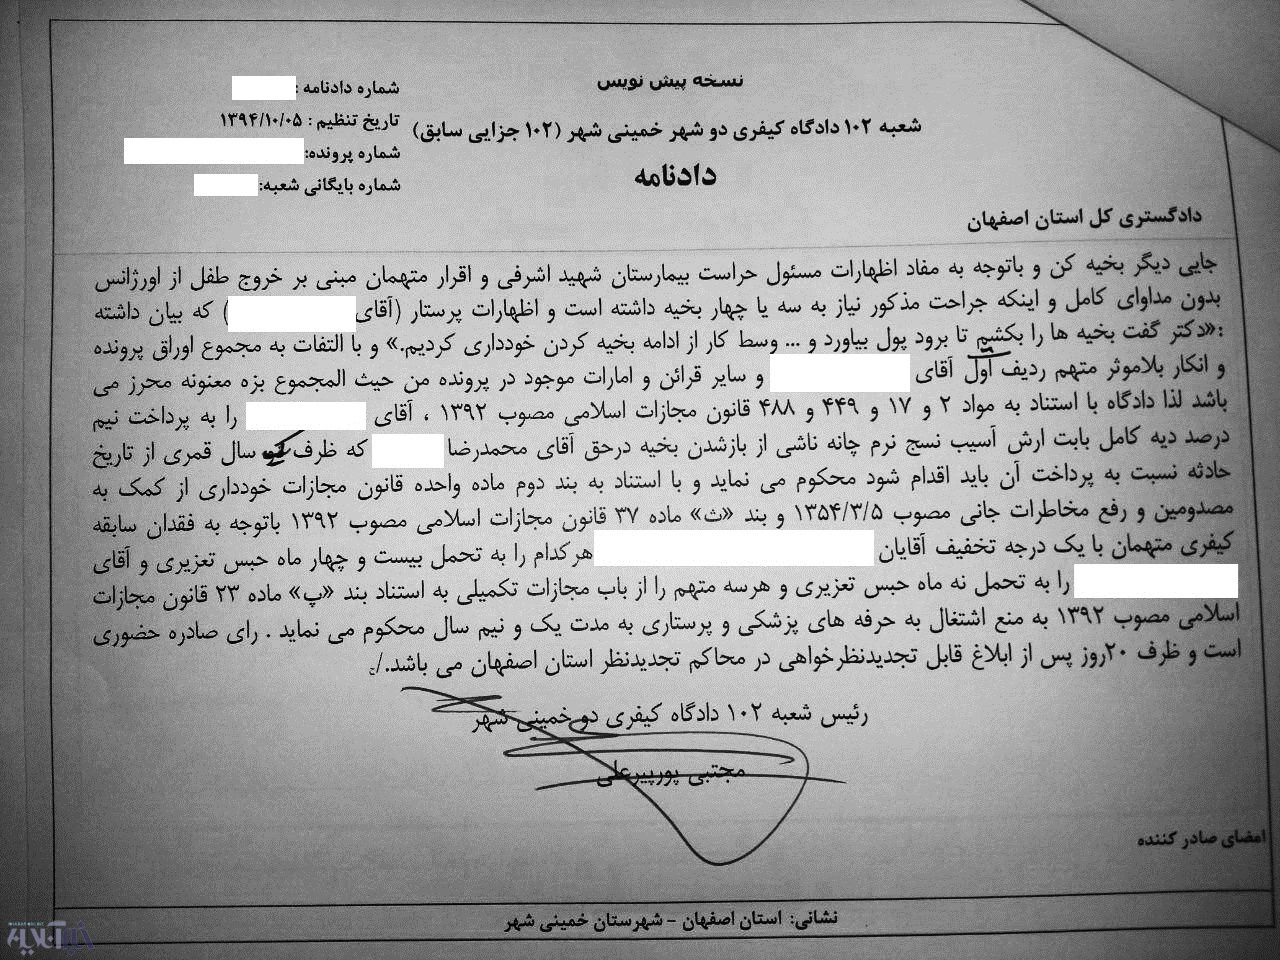 نسخه پیش نویس
شماره دادنامه :
شعبه ۱۰۲ دادگاه کیفری دو شهر خمینی شهر (۱۰۲ جزایی سابق)
تاریخ تنظیم : ۱۳۹۴/۱۰/۰۵
شماره پرونده:
دادنامه
شماره بایگانی شعبه:
دادگستری کل استان اصفهان
جایی دیگر بخیه کن و باتوجه به مفاد اظهارات مسئول حراست بیمارستان شهید اشرفی و اقرار متهمان مبنی بر خروج طفل از اورژانس
بدون مداوای کامل و اینکه جراحت مذکور نیاز به سه یا چهار بخیه داشته است و اظهارات پرستار (آقای ) که بیان داشته
:«دکتر گفت بخیه ها را بکشیم تا برود پول بیاورد و ... وسط کار از ادامه بخیه کردن خودداری کردیم.» و با التفات به مجموع اوراق پرونده
و انکار بلاموثر متهم ردیف اول آقای و سایر قرائن و امارات موجود در پرونده من حیث المجموع بزه معنونه محرز می
باشد لذا دادگاه با استناد به مواد ۲ و ۱۷ و ۴۴۹ و ۴۸۸ قانون مجازات اسلامی مصوب ۱۳۹۲ ، آقای را به پرداخت نیم
درصد دیه کامل بابت ارش آسیب نسج نرم چانه ناشی از بازشدن بخیه درحق آقای محمدرضا که ظرف سال قمری از تاریخ
حادثه نسبت به پرداخت آن باید اقدام شود محکوم می نماید و با استناد به بند دوم ماده واحده قانون مجازات خودداری از کمک به
مصدومین و رفع مخاطرات جانی مصوب ۱۳۵۴/۳/۵ و بند «ث» ماده ۳۷ قانون مجازات اسلامی مصوب ۱۳۹۲ باتوجه به فقدان سابقه
کیفری متهمان با یک درجه تخفیف آقایان هرکدام را به تحمل بیست و چهار ماه حبس تعزیری و آقای
را به تحمل نه ماه حبس تعزیری و هرسه متهم را از باب مجازات تکمیلی به استناد بند «پ» ماده ۲۳ قانون مجازات
اسلامی مصوب ۱۳۹۲ به منع اشتغال به حرفه های پزشکی و پرستاری به مدت یک و نیم سال محکوم می نماید . رای صادره حضوری
است و ظرف ۲۰روز پس از ابلاغ قابل تجدیدنظرخواهی در محاکم تجدیدنظر استان اصفهان می باشد./ج
رئیس شعبه ۱۰۲ دادگاه کیفری دو خمینی شهر
مجتبی پورپیرعلی
امضای صادر کننده
نشانی: استان اصفهان - شهرستان خمینی شهر
خبرآنلاین